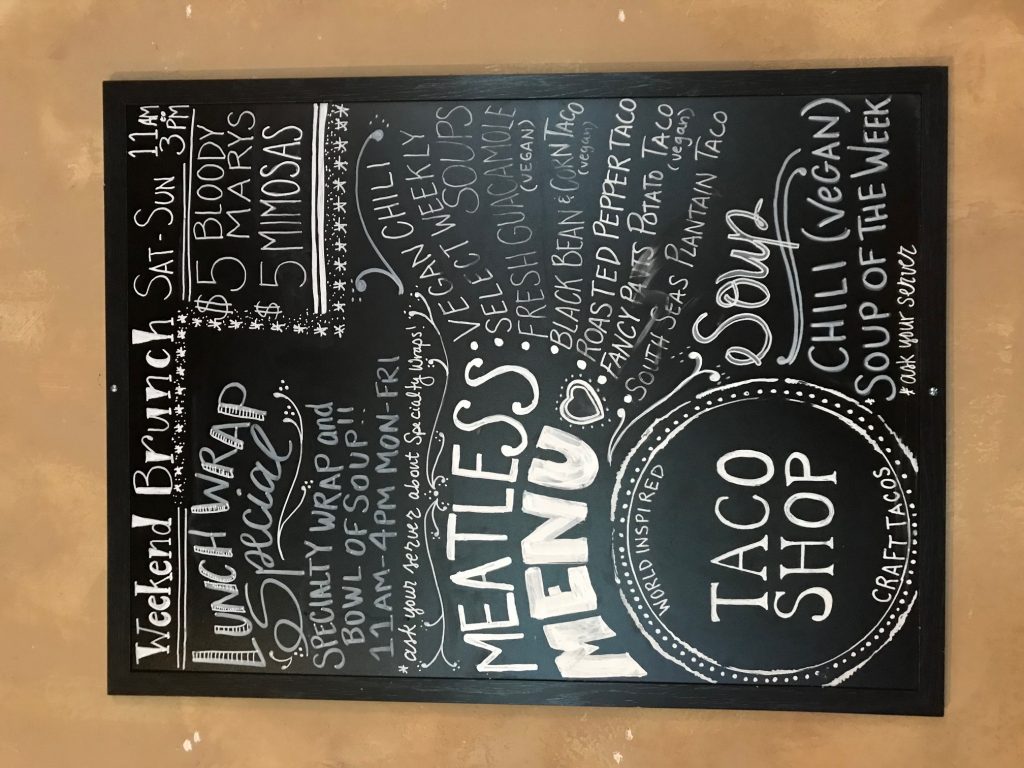 Weekend Brunch SAT-SUN 11AM to 3PM
$5 BLOODY MARYS
$5 MIMOSAS
LUNCH WRAP
Special
SPECIALTY WRAP and
BOWL OF SOUP!!
11AM-4PM MON-FRI
*ask your server about Specialty Wraps!
MEATLESS
MENU
VEGAN CHILI
VEGAN WEEKLY
SELECT SOUPS
FRESH GUACAMOLE
(VEGAN)
BLACK BEAN & CORN TACO
(vegan)
ROASTED PEPPER TACO
FANCY PANTS POTATO TACO
(vegan)
SOUTH SEAS PLANTAIN TACO
WORLD INSPIRED
TACO
SHOP
CRAFT TACOS
Soup
CHILI (VEGAN)
SOUP OF THE WEEK
*ask your server